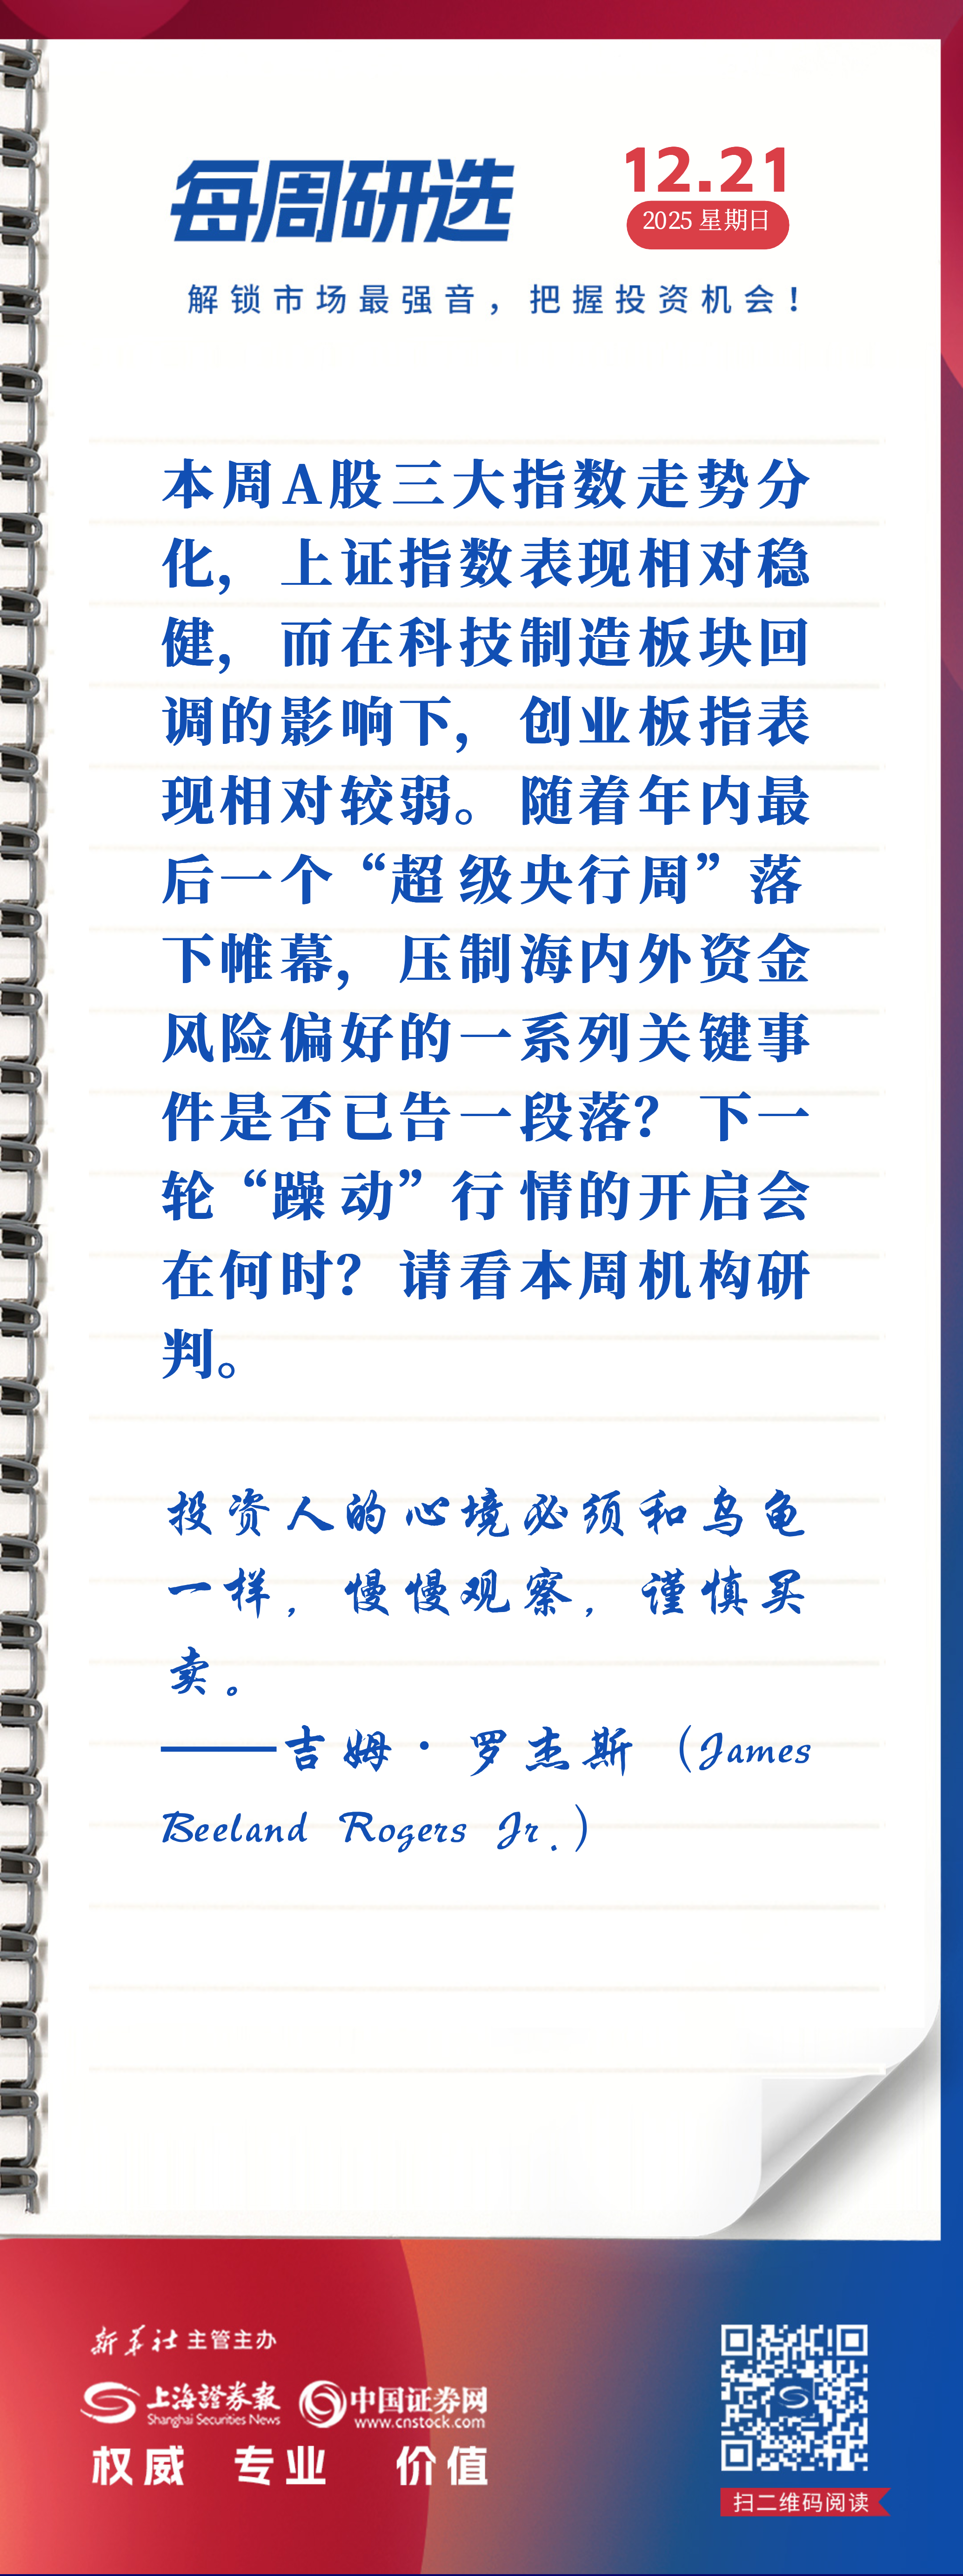 每周研选
12.21
2025 星期日
解锁市场最强音，把握投资机会！
本周A股三大指数走势分
化，上证指数表现相对稳
健，而在科技制造板块回
调的影响下，创业板指表
现相对较弱。随着年内最
后一个“超级央行周”落
下帷幕，压制海内外资金
风险偏好的一系列关键事
件是否已告一段落？下一
轮“躁动”行情的开启会
在何时？请看本周机构研
判。
投资人的心境必须和乌龟
一样，慢慢观察，谨慎买
卖。
——吉姆·罗杰斯（James
Beeland Rogers Jr.）
新华社 主管主办
上海證券報 中国证券网
Shanghai Securities News www.cnstock.com
权威 专业 价值
扫二维码阅读